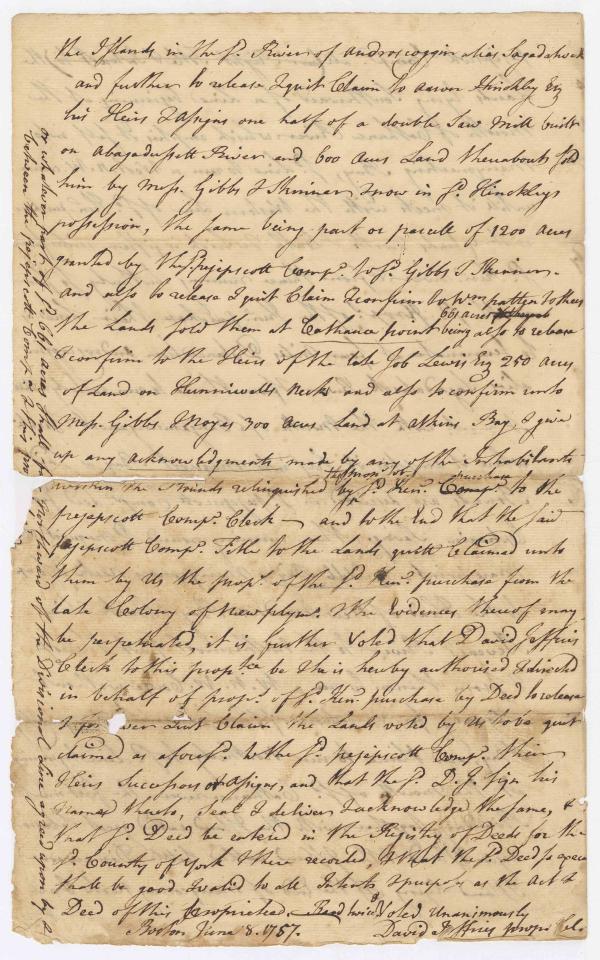 the Islands in the sd. River of Androscoggin alias Sagadahock
and further to release & quit Claim to Aaron Hinckley Esq
his Heirs & Assigns one half of a double Saw Mill built
on Abagadussett River and 600 Acres Land thereabouts sold
him by Mess. Gibbs & Skinner & now in sd. Hinckleys
possession, the same being part or parcell of 1200 acres
granted by the sd. pejepscott Compa. to sd. Gibbs & Skinner.
and also to release & quit Claim & confirm to Wm. patten & others
661 acres
the Lands sold them at Cathance point being also to release
& confirm to the Heirs of the late Job Lewis Esq 250 acres
of Land on Hunniwells Neck and also to confirm unto
Mess. Gibbs & Noyes 300 acres Land at Atkins Bay, & give
up any acknowledgments made by any of the Inhabitants
within the Bounds relinquished by sd. Ken. purchase Compa. to the
pejepscott Compa. Clerk — and to the End that the said
pejepscott Compa. Title to the Lands quitt Claimed unto
them by us the props. of the sd. Ken. purchase from the
late Colony of New plymo. & the Evidences thereof may
be perpetuated, it is further Voted that David Jeffries
Clerk to this proptee be & he is hereby authorised & directed
in behalf of props. of sd. Ken. purchase by Deed to release
& for ever Quit Claim the Lands voted by us to be quit
claimed as aforesd. to the sd. pejepscott Compa. their
Heirs Successors or Assigns, and that the sd. D. J. sign his
Name thereto, Seal & deliver & acknowledge the same, &
that sd. Deed be entered in the Registry of Deeds for the
sd. County of York & there recorded, & that the sd. Deed so
shall be good & valid to all Intents & purposes as the Act &
Deed of this propriety Voted Unanimously
Boston June 8. 1757. David Jeffries propr Cler
or whatever part of sd. 661 acres shall to the Northward of the Divisional Line agreed upon by &
between the pejepscott Compa. & this